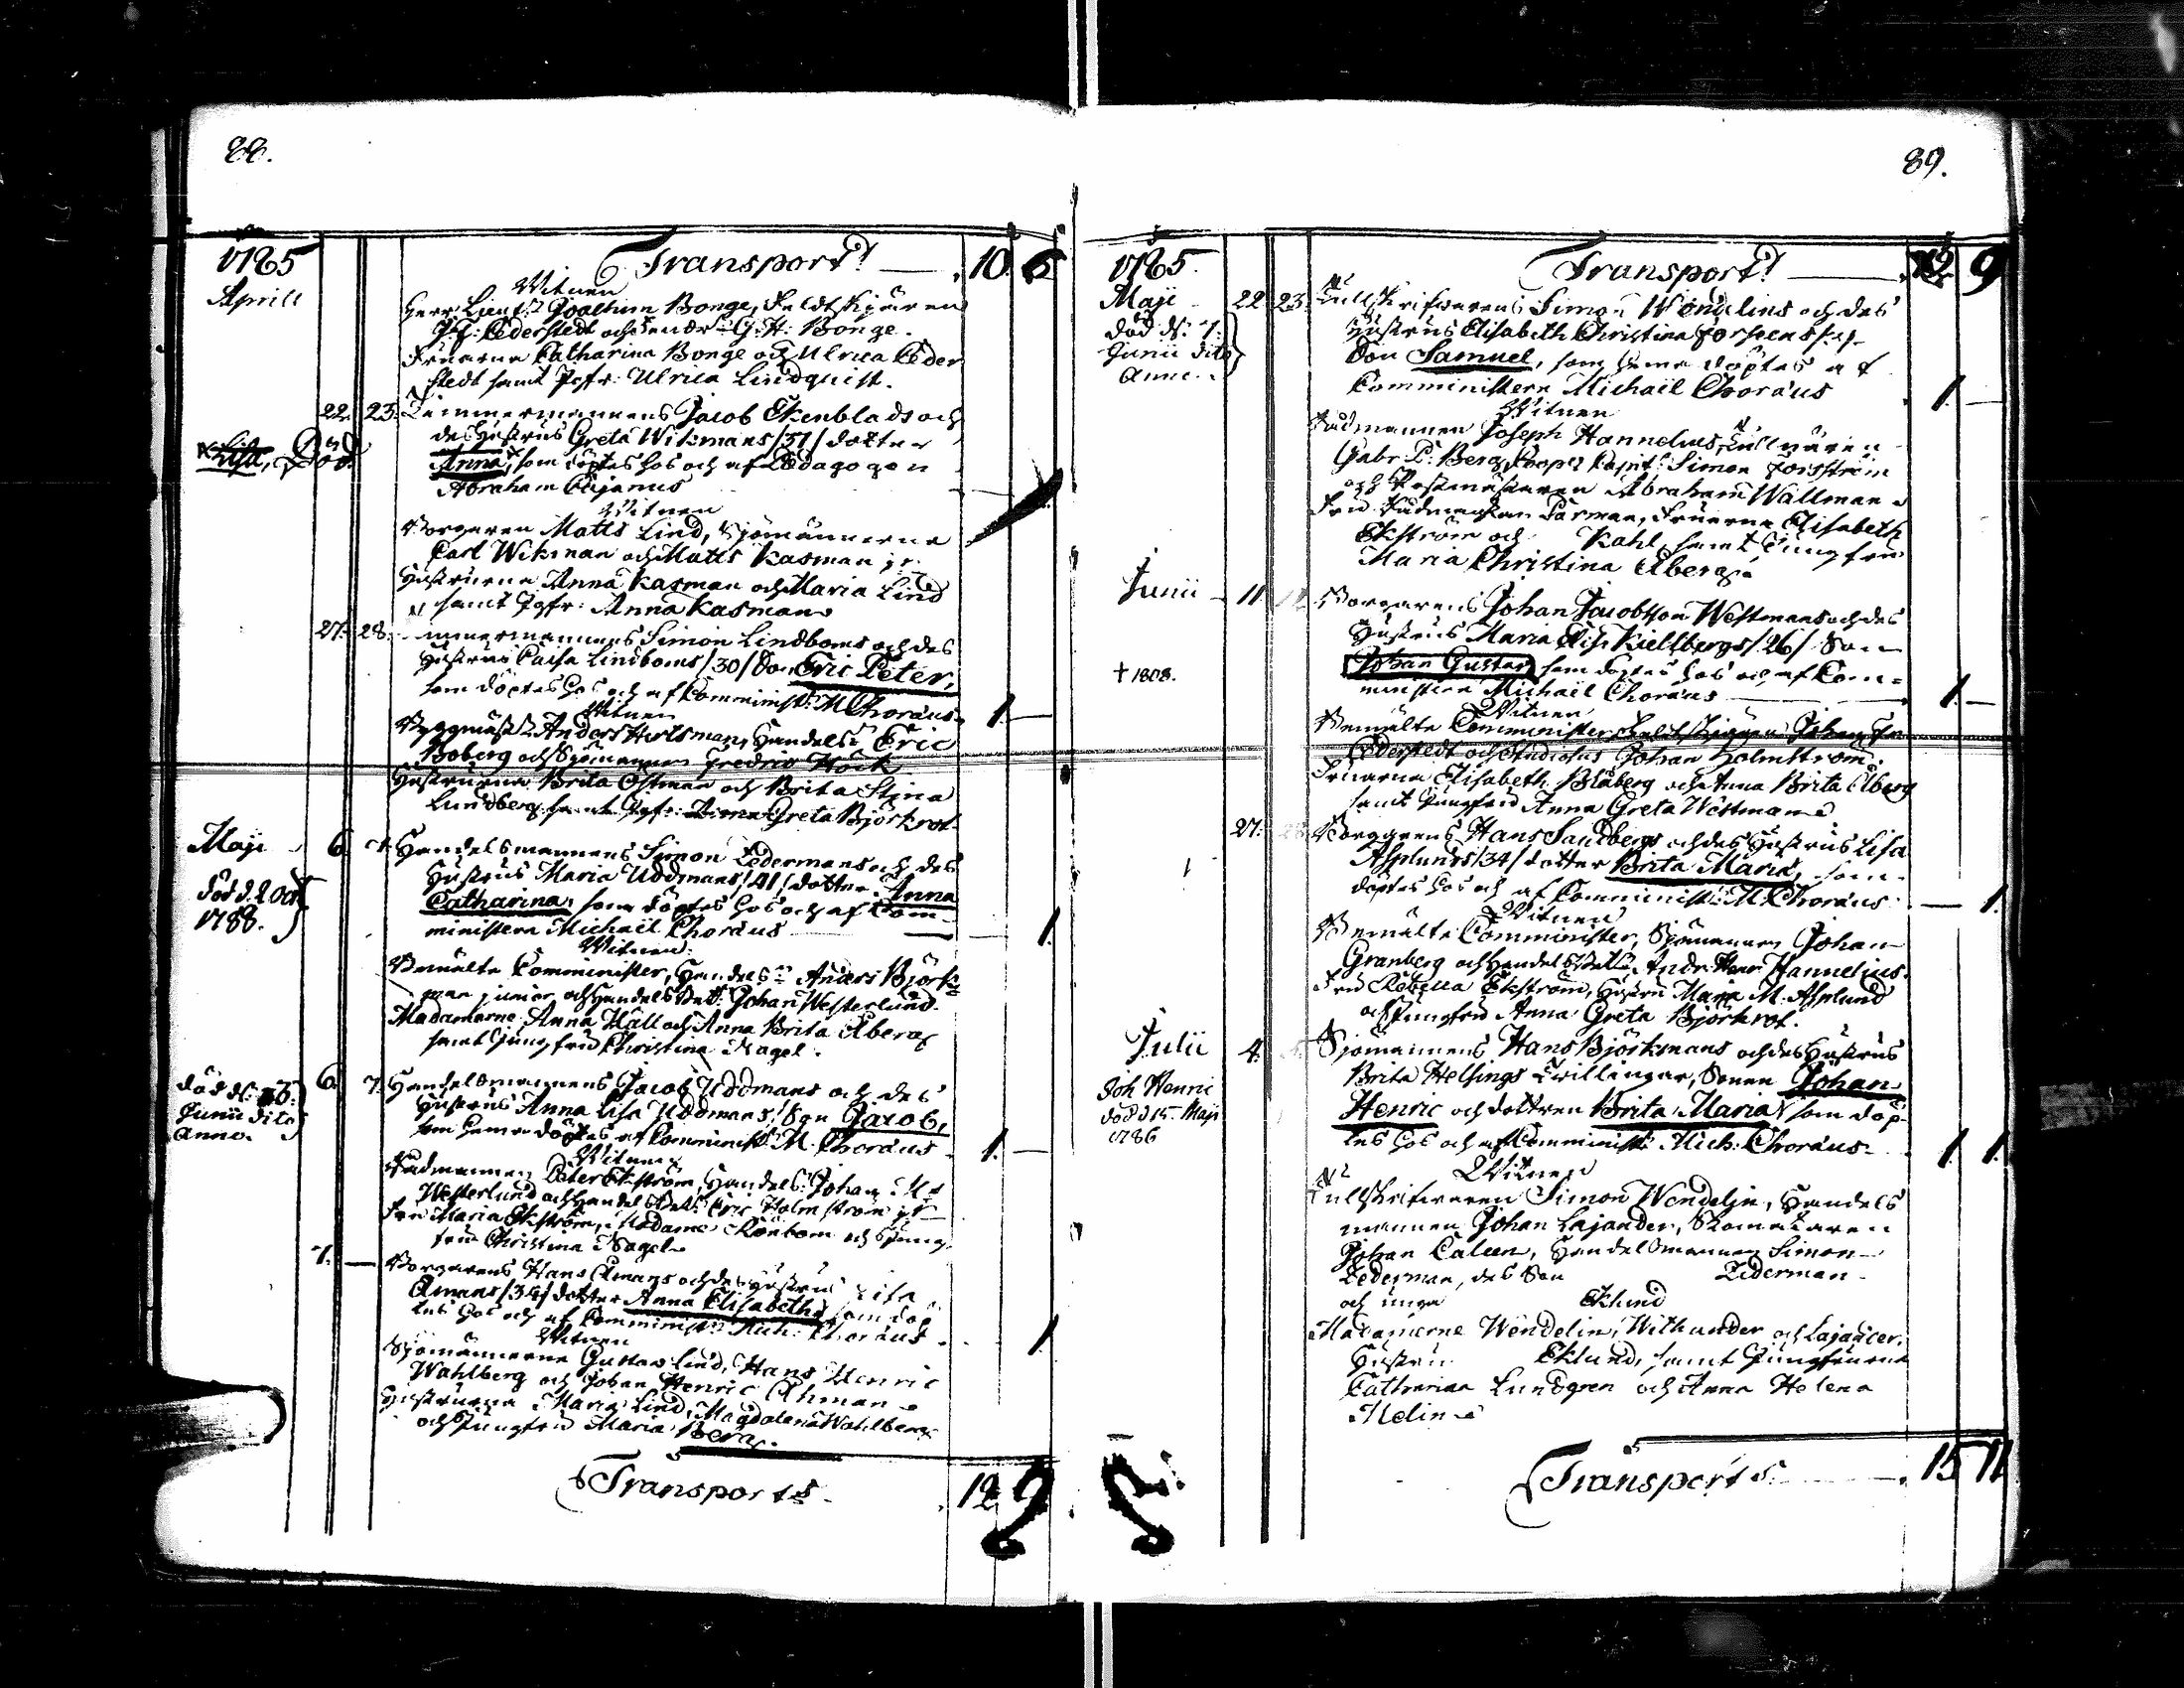 88.
1785
Aprill
Transport 10. 6
Witnen
Herr Lieut: Joachim Bonge, Feldtskiären
J. G: Cederstedt och G. H: Bonge.
Fruarna Catharina Bonge och Ulrica Ceder
stedt samt Jgfr: Ulrica Lindquist.
22. 23. Timmermannens Jacob Ekenblads och
des Hustrus Greta Wikmans /31/ dotter
Lisa, Död.
Anna, som döptes hos och af Pædagogen
Abraham Cajanus
Witnen
Borgaren Matts Lind, Sjömännerna
Carl Wikman och Matts Kasman jr.
Hustrurna Anna Kasman och Maria Lind
samt Jgfr: Anna Kasman
27. 28. Timmermannens Simon Lindboms och des
Hustrus Caisa Lindboms /30/ Son Eric Peter,
som döptes hos och af Comminist: M. Choræus 1.
Witnen
Byggmäst: Anders Hulsman, Handels: Eric
Boberg och Sjömannen Fredric Höck
Hustrurna Brita Östman och Brita Stina
Lundberg samt Jgfr: Anna Greta Björkrot
Maji 6. 7. Handelsmannens Simon Zedermans och des
Hustrus Maria Uddmans /41/ dotter Anna
död d. 2 Oct
1788.
Catharina, som döptes hos och af Com
ministern Michaël Choræus 1.
Witnen
Bemälte Comminister, Handels: Anders Björk
man junior och Handels Bet: Johan Westerlund.
Madamerne Anna Häll och Anna Brita Åberg
samt Jungfru Christina Nagel.
död d.
Junii dito
anno.
6. 7. Handelsmannens Jacob Uddmans och des
Hustrus Anna Lisa Uddmans, Son Jacob,
som hemma döptes af Comminist: M. Choræus 1.
Witnen
Rådmannen Peter Ekström, Handels: Johan
Westerlund och Handels Bet: Eric Holmström jr
Fru Maria Ekström, Madame Rönbom och Jung
fru Christina Nagel
7. Borgarens Hans Åmans och des Hustrus Lisa
Åmans /34/ dotter Anna Elisabeth, som döp
tes hos och af Comminist: Mich: Choræus 1
Witnen
Sjömännerna Gustav Lind, Hans Henric
Wahlberg och Johan Henric Åhman
Hustrurna Maria Lind, Magdalena Wahlberg
och Jungfru Maria Berg.
Transports 12 9
89.
1785.
Transport 12 9
Maji 22. 23. Tullskrifvarens Simon Wendelins och des
död d: 7:
Junii dito
anno.
Hustrus Elisabeth Christina
Son Samuel, som hemma döptes af
Comministern Michaël Choræus 1.
Witnen
Rådmannen Joseph Hannelius,
Gabr P. Berg, Simon Forsström
och Postmästaren Abraham Wallman
Fru Rådmanskan Parman, Fruerna Elisabeth
Ekström och Kahl, samt Jungfru
Maria Christina Åberg
Junii 11. 12. Borgarens Johan Jacobsson Westmans och des
Hustrus Maria Elis: Kiellbergs /26/ Son
† 1808.
Johan Gustav, som döptes hos och af Com=
ministern Michaël Choræus 1.
Witnen
Bemälte Comminister, Feltskiären Johan
Cederstedt och Studiosus Johan Holmström.
Fruarna Elisabeth Blåberg och Anna Brita Åberg
samt Jungfru Anna Greta Westman
27. 28. Borgarens Hans Sandbergs och des Hustrus Lisa
Asplunds /34/ dotter Brita Maria, som
döptes hos och af Comminist: M. Choræus 1.
Witnen
Bemälte Comminister, Sjömannen Johan
Granberg och Handels Bet: Andr: Henr: Hannelius.
Fru Rebecca Ekström, Hustru Maria M. Asplund
och Jungfru Anna Greta Björkrot.
Julii 4. 5. Sjömannens Hans Björkmans och des Hustrus
Brita Helsings Twillingar, Sonen Johan
Joh Henric
död d 15. Maji
1786
Henric och dottren Brita Maria, som döp
tes hos och af Comminist: Mich: Choræus 1. 1.
Witnen
Tullskrifvaren Simon Wendelin, Handels
mannen Johan Lajander, Skomakaren
Johan Caleen, Handelsmannen Simon
Zederman, des Son Zederman
och unga Eklund
Madamerne Wendelin, Withander och Lajander,
Hustru Eklund, samt Jungfruerna
Catharina Lundgren och Anna Helena
Melin
Transports 15 11